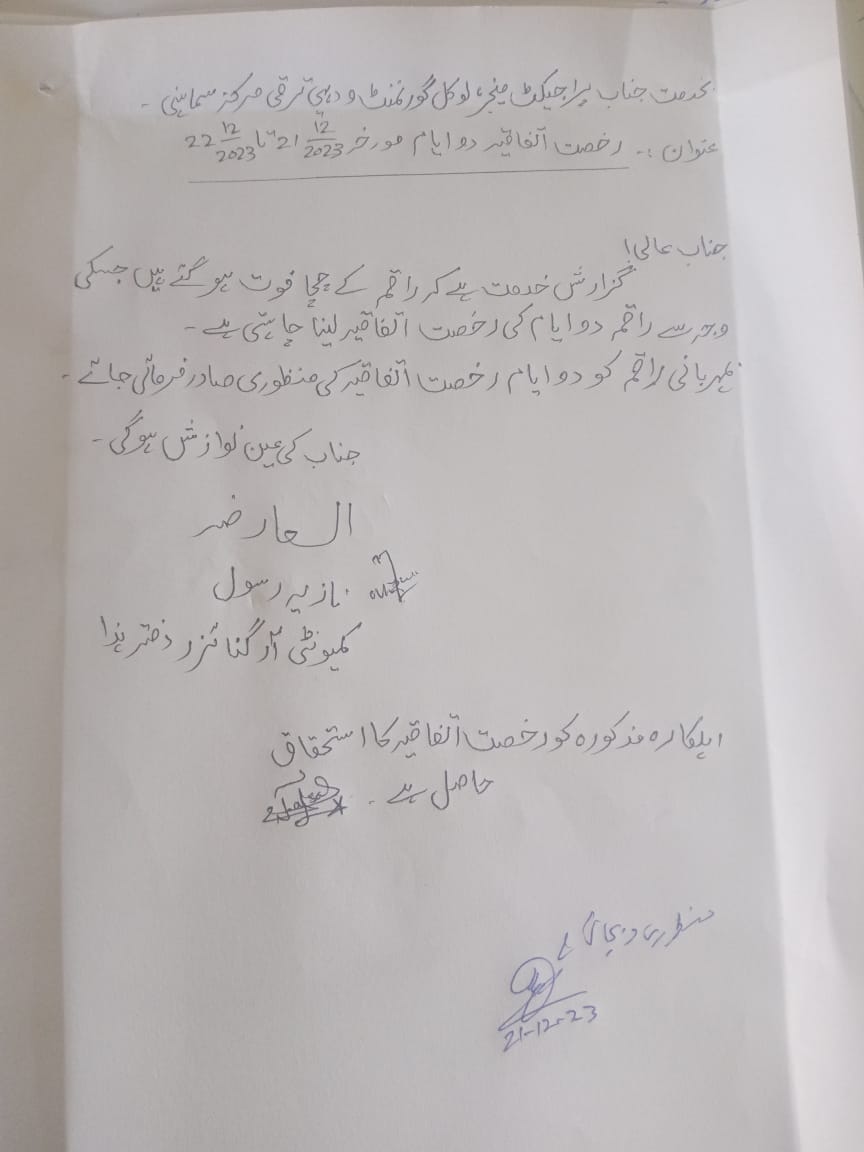 بخدمت جناب پراجیکٹ منیجر، لوکل گورنمنٹ و دہی ترقی مرکز سماہنی -
عنوان :- رخصت اتفاقیہ دو ایام مورخہ 21 12/2023 تا 22 12/2023
جناب عالی!
گزارش خدمت ہے کہ راقمہ کے چچا فوت ہو گئے ہیں جسکی
وجہ سے راقمہ دو ایام کی رخصت اتفاقیہ لینا چاہتی ہے -
بمہربانی راقمہ کو دو ایام رخصت اتفاقیہ کی منظوری صادر فرمائی جائے -
جناب کی عین نوازش ہو گی -
العارضہ
نازیہ رسول
کمیونٹی آرگنائزر دفتر ہذا
اہلکارہ مذکورہ کو رخصت اتفاقیہ کا استحقاق
حاصل ہے -
منظوری دی جاتی ہے
21-12-23